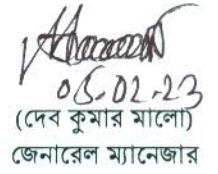 05-02-23
(দেব কুমার মালো)
জেনারেল ম্যানেজার